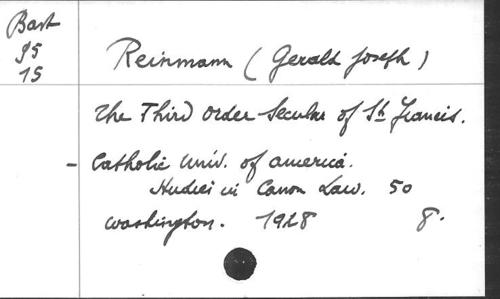 Bart
95
15
Reinmann (Gerald Joseph)
The Third Order Secular of St Francis.
- Catholic Univ. of america.
Studies in Canon Law. 50
Washington. 1928 8.